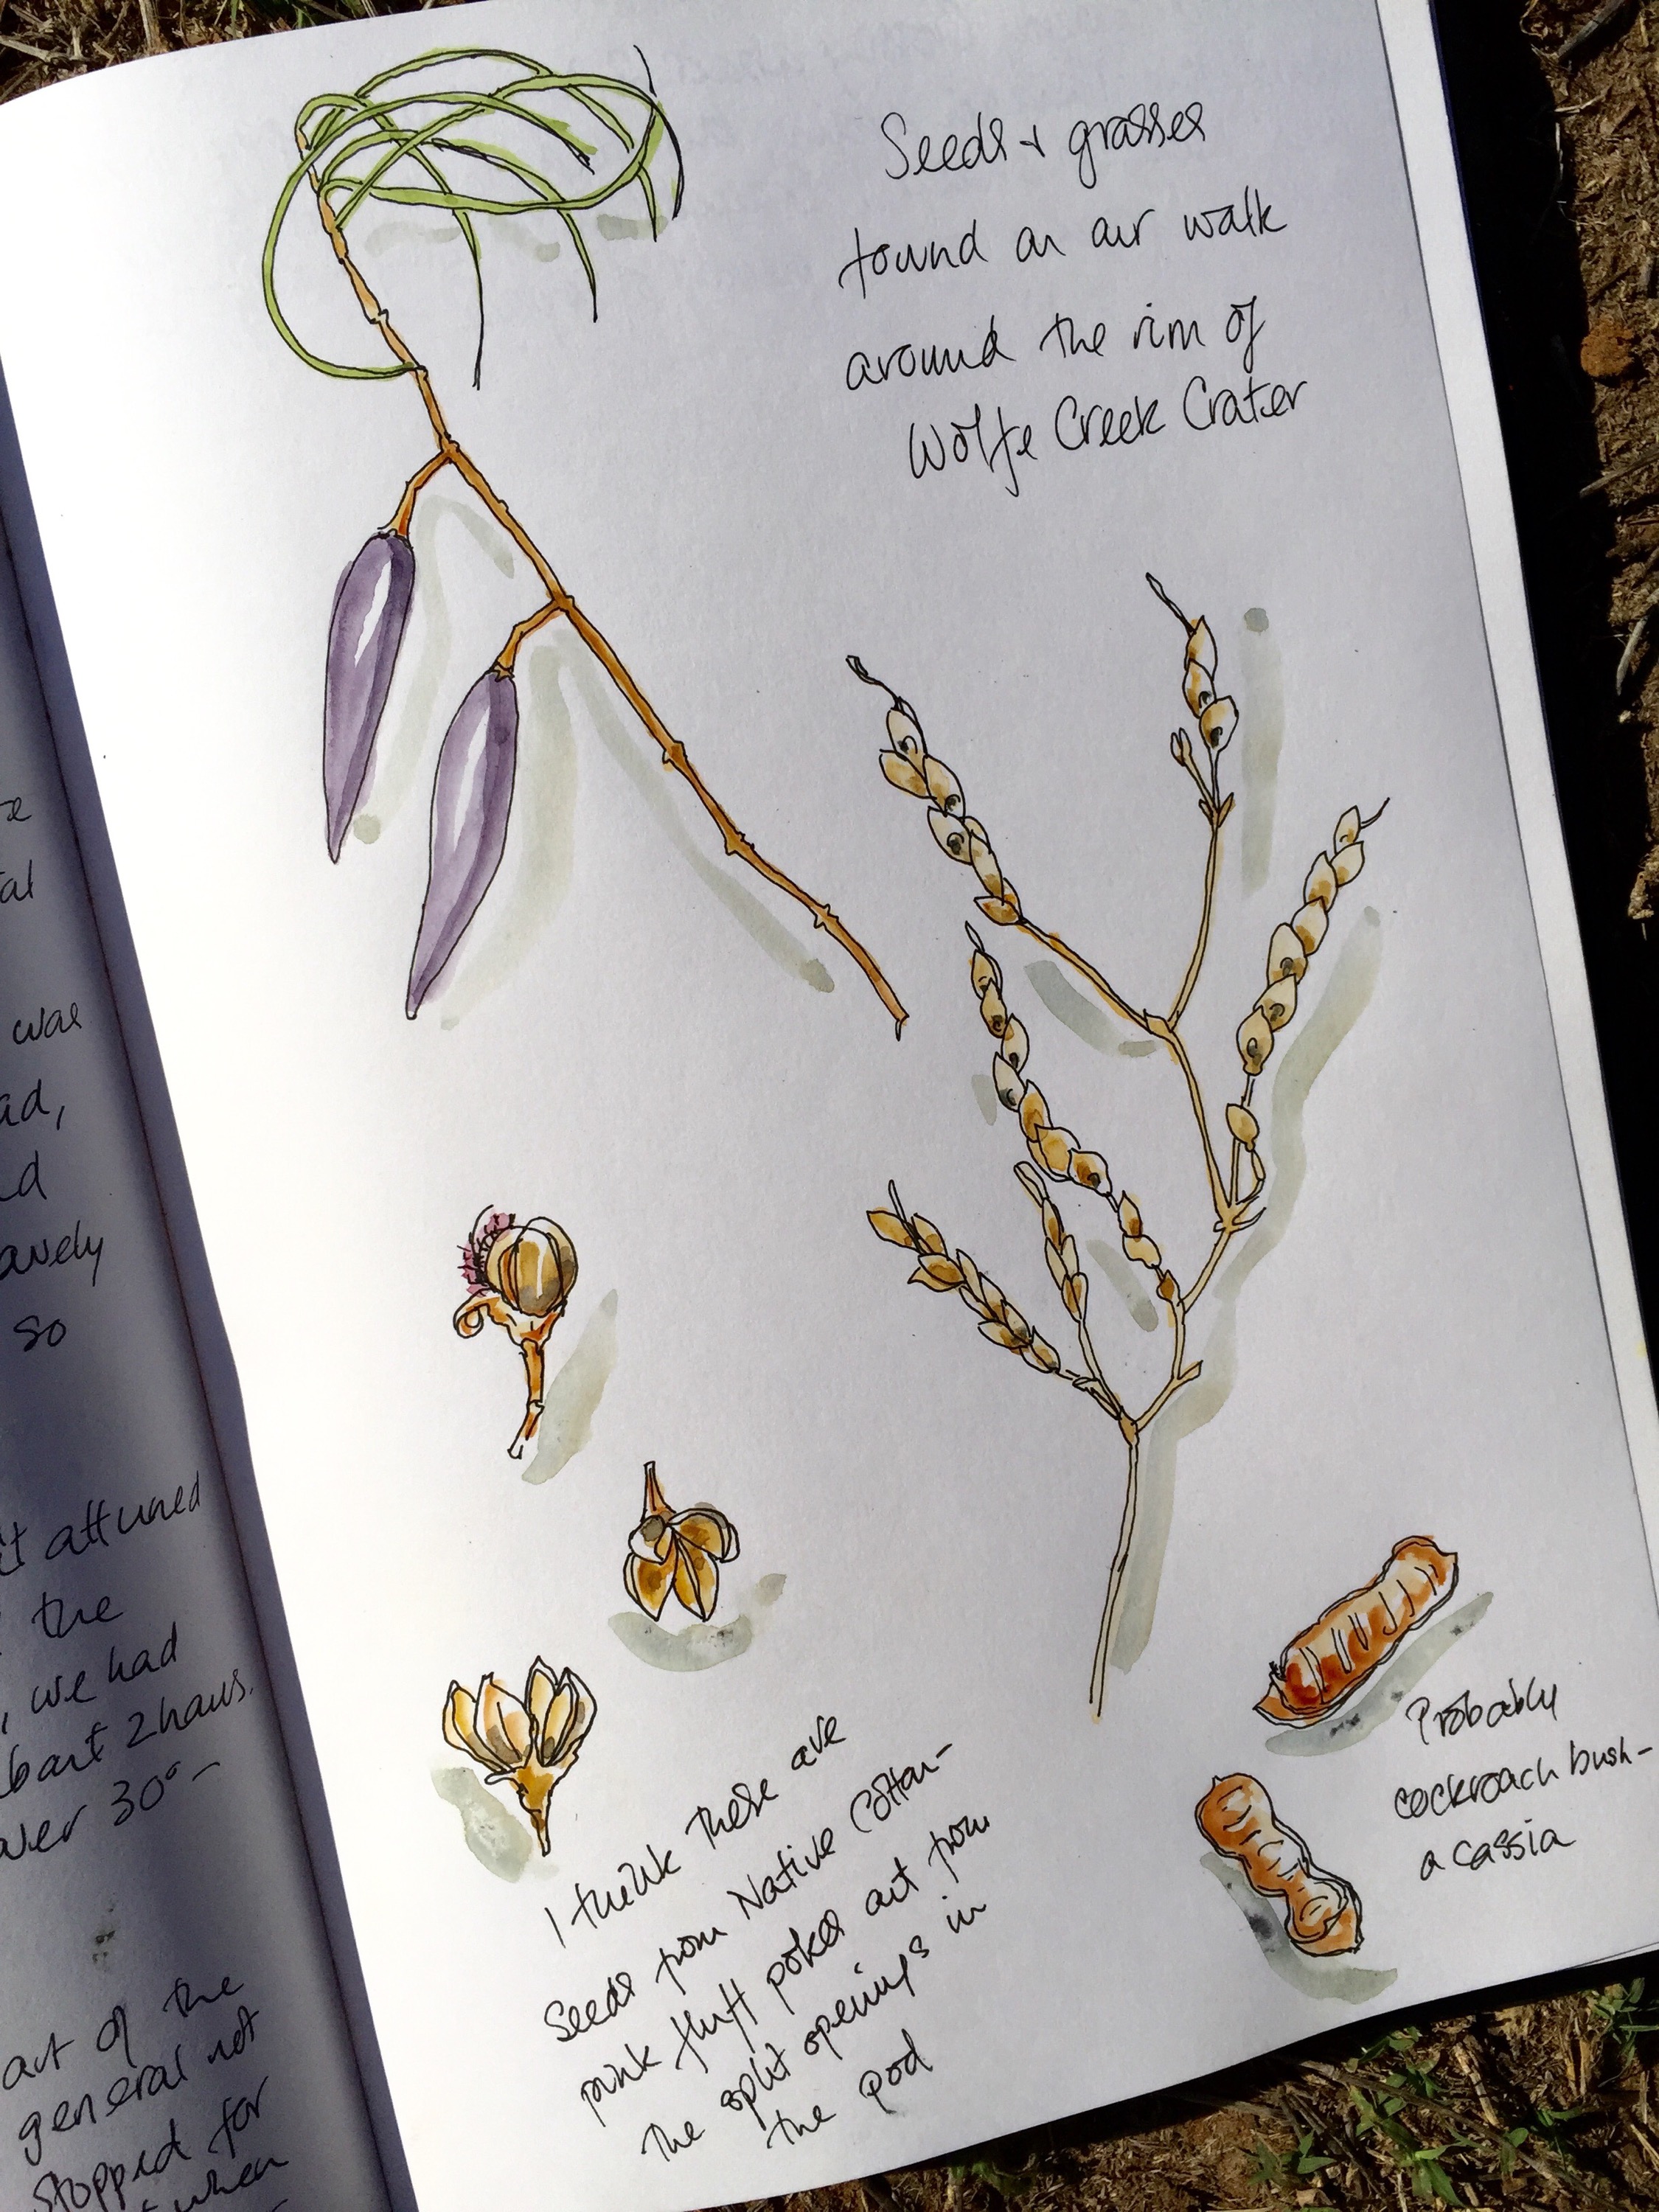 was
so
attuned
the
, we had
2 hours.
over 30° -
out of the
general not
stopped for
when
Seeds + grasses
found on our walk
around the rim of
Wolfe Creek Crater
I think these are
Seeds from Native Cotton -
pink fluff poked out from
the split openings in
the pod
Probably
cockroach bush -
a cassia